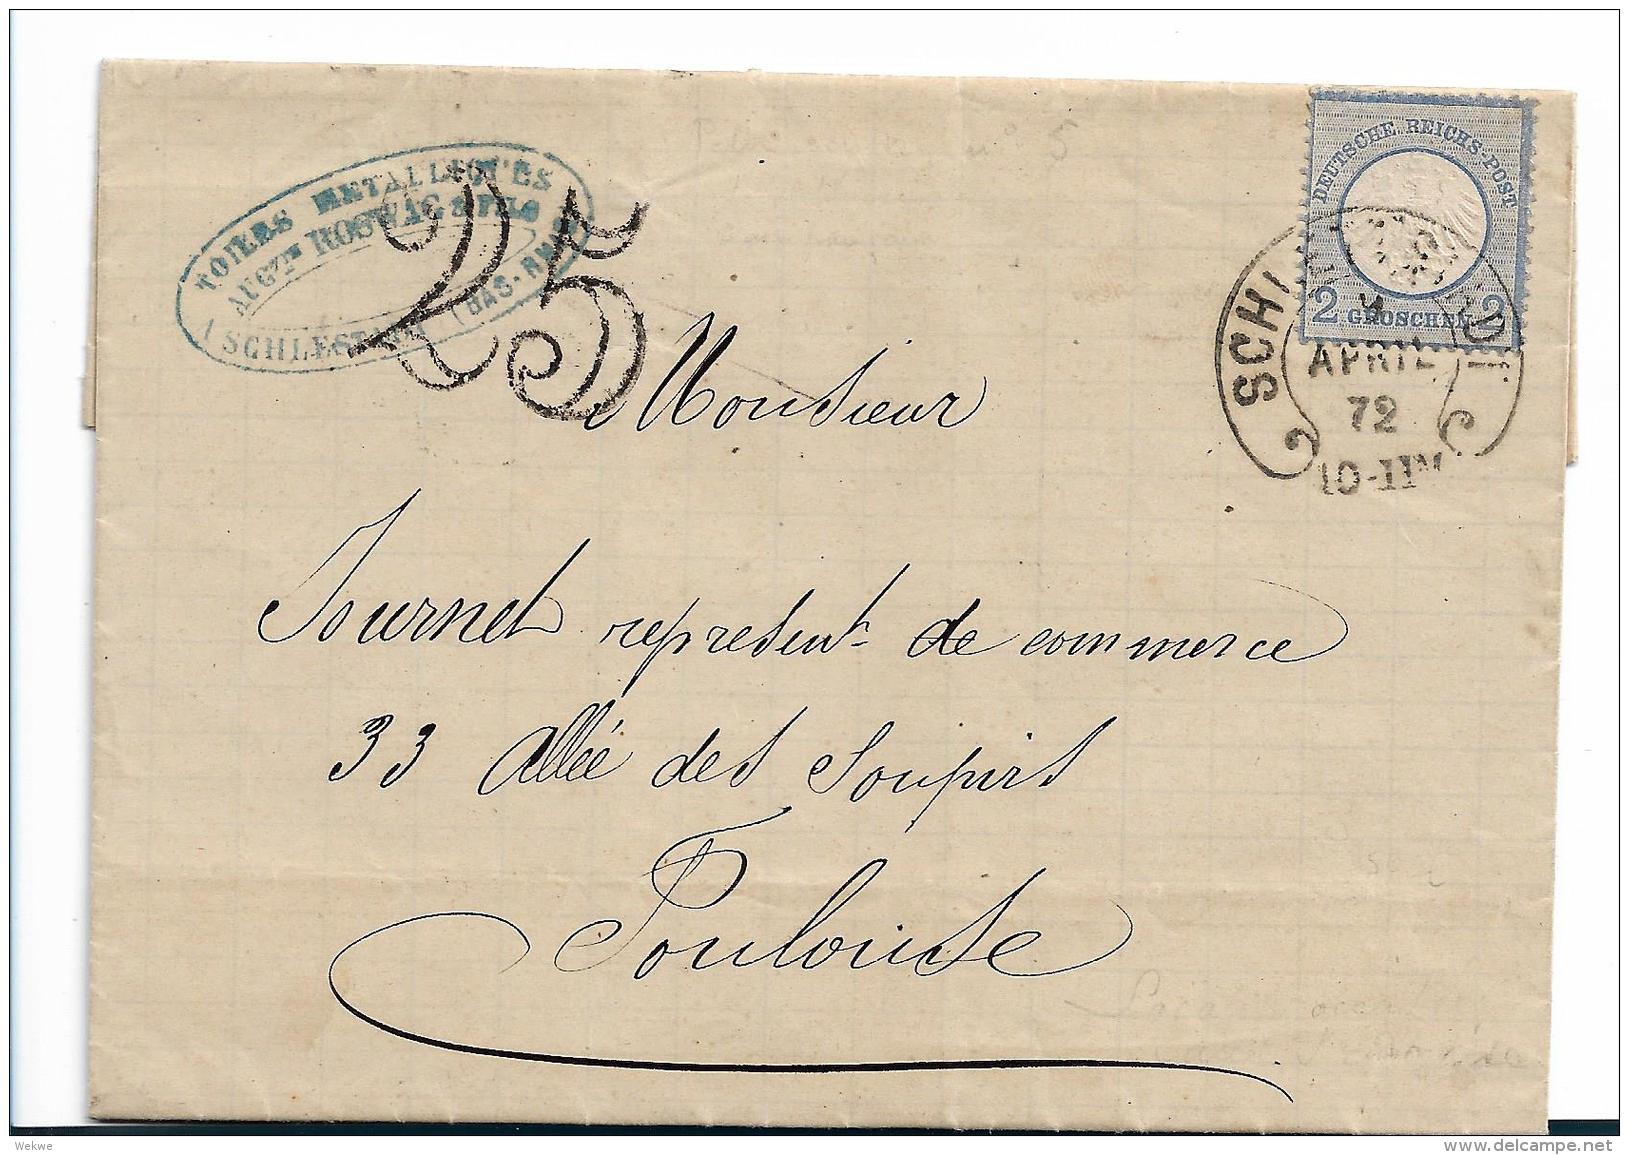 TOILES METALLIQUES
AUGTIN ROSWAG & FILS
A SCHLESTADT (BAS-RHIN)
25
DEUTSCHE REICHS-POST
2 GROSCHEN 2
SCHL
APRIL
72
10-11
n° 5
Monsieur
Journet represent. de commerce
33 Allée des Soupirs
Toulouse
Wekwe
www.delcampe.net